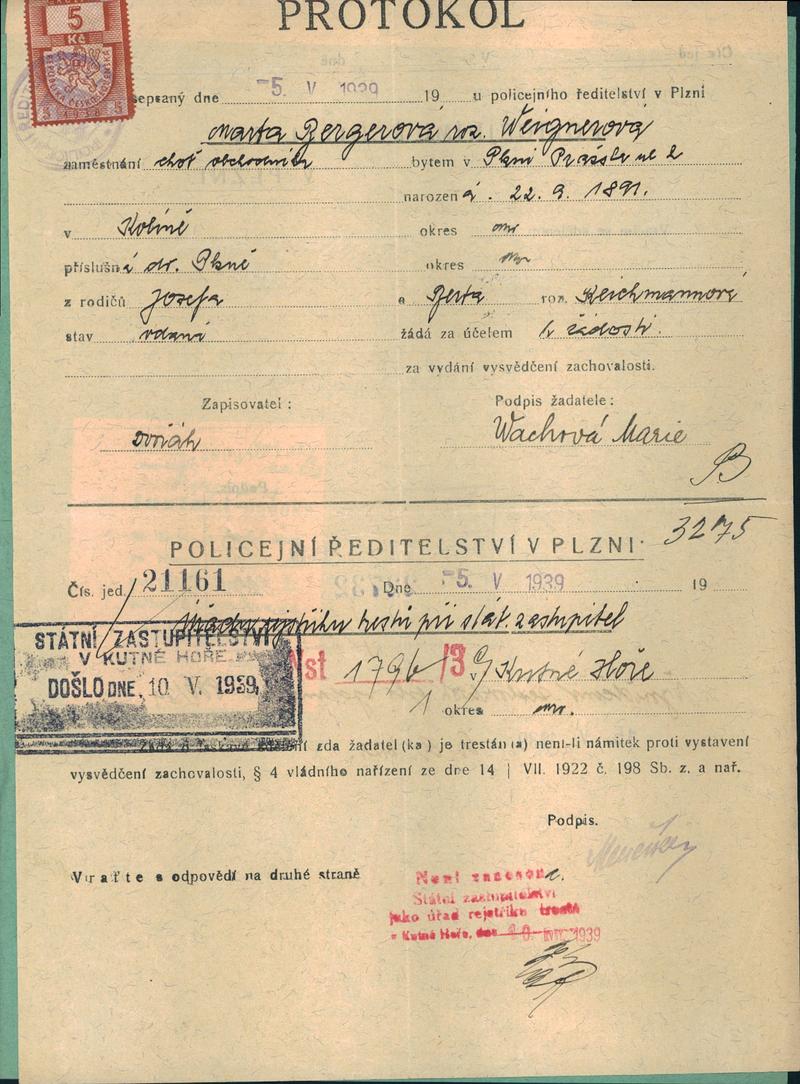 PROTOKOL
5
Kč
sepsaný dne -5. V 1939 19 u policejního ředitelství v Plzni
Marta Bergerová roz. Weignerová
zaměstnání choť obchodníka bytem v Plzni
narozená . 22. 9. 1891.
v Kolíně okres
příslušná do. Plzně okres
z rodičů Josefa a Berta roz. Reichmannová
stav vdaná žádá za účelem k žádosti.
za vydání vysvědčení zachovalosti.
Zapisovatel: Podpis žadatele:
Dvořák Wachová Marie
3275
POLICEJNÍ ŘEDITELSTVÍ V PLZNI.
Čís. jed. 21161 Dne -5. V 1939 19
rejstříku trestů při stát. zastupitel
STÁTNÍ ZASTUPITELSTVÍ
V KUTNÉ HOŘE
DOŠLO DNE, 10 V. 1939
Nst /3 v Kutné Hoře
okres
zda žadatel(ka) je trestán(a) není-li námitek proti vystavení
vysvědčení zachovalosti, § 4 vládního nařízení ze dne 14 | VII. 1922 č. 198 Sb. z. a nař.
Podpis.
Vraťte s odpovědí na druhé straně
Není zanesena.
Státní zastupitelství
jako úřad rejstříku trestů
v Kutné Hoře, dne 1939